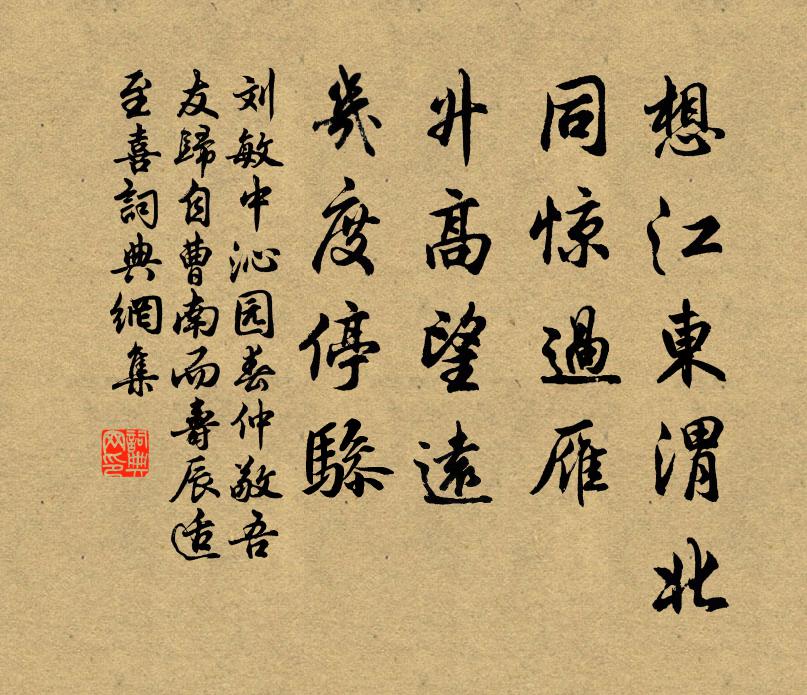 想江東渭北
同惊過雁
升高望遠
幾度停驂
刘敏中沁园春仲敬吾
友歸自曹南而壽辰适
至喜詞典網集
詞典網印